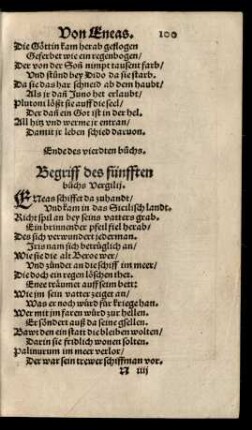 Von Eneas. 100
Die Göttin kam herab geflogen
Geferbet wie ein regenbogen/
Der von der Soñ nimpt tausent farb/
Vnd stünd bey Dido da sie starb.
Da sie das har schneid ab dem haubt/
Als jr dañ Juno het erlaubt/
Plutoni lößt sie auff die seel/
Der dañ ein Got ist in der hel.
All hitz vnd werme jr entran/
Damit jr leben schied daruon.
Ende des vierdten büchs.
Begriff des fünfften
büchs Vergilij.
ENeas schiffet da zuhandt/
Vnd kam in das Sicilisch landt.
Richt spil an bey seins vatters grab.
Ein brinnender pfeil fiel herab/
Des sich verwundert jederman.
Iris nam sich betrüglich an/
Wie sie die alt Beroe wer/
Vnd zündet an die schiff im meer/
Die doch ein regen löschen thet.
Enee träumet auff seim bett:
Wie jm sein vatter zeiget an/
Was er noch würd für kriege han.
Wer mit jm faren würd zur hellen.
Er söndert auß da seine gsellen.
Bawt den ein statt die bleiben wolten/
Darin sie fridlich wonen solten.
Palinurum im meer verlor/
Der war sein trewer schiffman vor.
N iiij